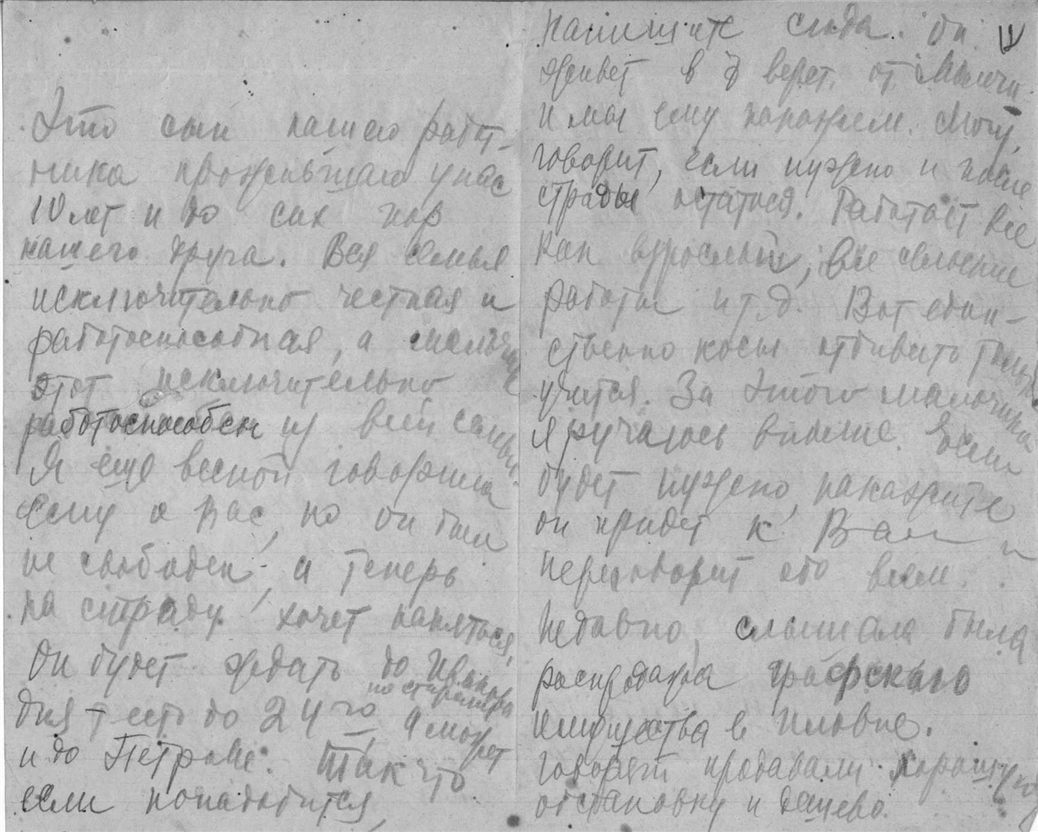 Это сын нашего работ-
ника прожившаго у нас
10 лет и до сих пор
нашего друга. Вся семья
исключительно честная и
работоспособная, а мальчик
этот исключительно
работоспособен из всей семьи.
Я еще весной говорила
ему о Вас, но он был
не свободен, а теперь
на страду хочет наняться,
Он будет ждать до Иванова
дня т есть до 24 го по старому а может
и до Петрова. Так что
если понадобится,
напишите сюда. Он
живет в верст. от
и мы ему покажем. Могу,
говорит, если нужно и после
страды остаться. Работает все
как взрослый, все сельские
работы и т.д. Вот един-
ственно косы отбивать только
учится. За этого мальчика
я ручаюсь вполне. Если
будет нужно, накажите
он придет к Вам и
переговорит обо всем.
Недавно, слышала была
распродажа графскаго
имущества в Иловне.
Говорят продавали хорошую
обстановку и дешево.